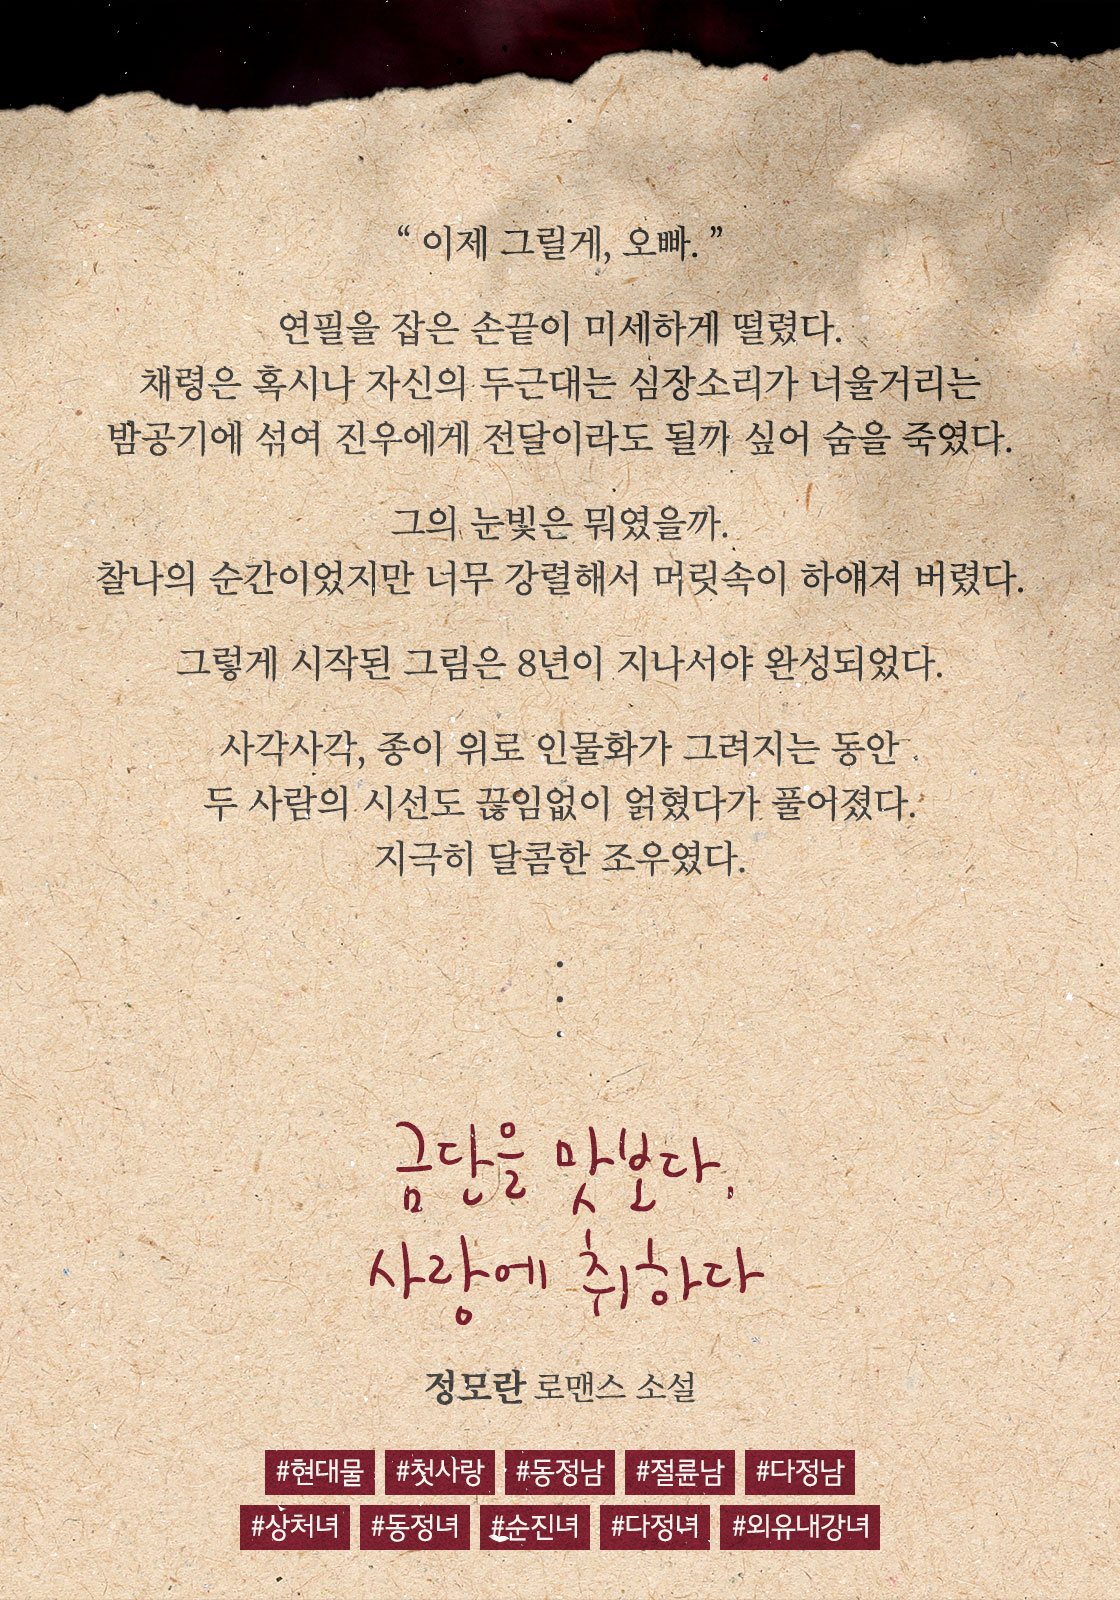 “ 이제 그릴게, 오빠. ”
연필을 잡은 손끝이 미세하게 떨렸다.
채령은 혹시나 자신의 두근대는 심장소리가 너울거리는
밤공기에 섞여 진우에게 전달이라도 될까 싶어 숨을 죽였다.
그의 눈빛은 뭐였을까.
찰나의 순간이었지만 너무 강렬해서 머릿속이 하얘져 버렸다.
그렇게 시작된 그림은 8년이 지나서야 완성되었다.
사각사각, 종이 위로 인물화가 그려지는 동안
두 사람의 시선도 끊임없이 얽혔다가 풀어졌다.
지극히 달콤한 조우였다.
금단을 맛보다,
사랑에 취하다
정모란 로맨스 소설
#현대물 #첫사랑 #동정남 #절륜남 #다정남
#상처녀 #동정녀 #순진녀 #다정녀 #외유내강녀